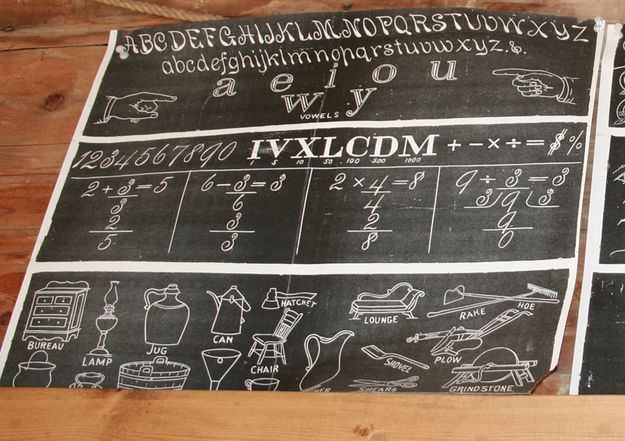 ABCDEFGHIJKLMNOPQRSTUVWXYZ
abcdefghijklmnopqrstuvwxyz.&.
a e i o u
w y
VOWELS
1234567890 IVXLCDM + - × ÷ = $ %
5 10 50 100 500 1000
2 + 3 = 5 6 - 3 = 3 2 × 4 = 8 9 ÷ 3 = 3
3 6 4 3 9 3
2 3 2 9
5 3 8 0
HATCHET
BUREAU LAMP JUG CAN CHAIR LOUNGE RAKE HOE
SHOVEL PLOW
SHEARS GRINDSTONE